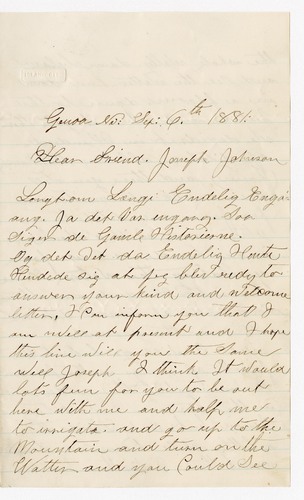 Genoa Nv: 6.th 1881.
Dear Friend. Joseph Johnson
Langt om Længe Endelig Engang
ang. Ja det Var engang. Saa
Siger de Gamle Historierne.
Og det Vet da Endelig Hente
Hendde sig at jeg blev redy to
answer your kind and welcome
letter, I Can inform you that I
am well at present and I hope
this line will you the Same
well Joseph I think It would
lots fun for you to be out
here with me and half me
to irrigate. and go up to the
Mountain and turn on the
Watter and you Could See